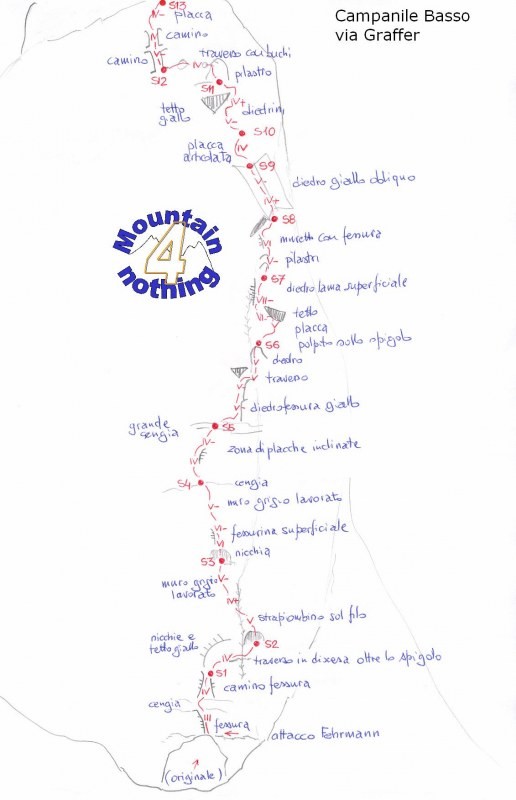 Campanile Basso
via Graffer
S13
IV-
placca
IV-
camino
V-
camino
traverso con buchi
IV
S12
pilastro
S11
tetto
giallo
IV+
diedrini
V-
S10
placca
articolata
IV
S9
V-
diedro giallo obliquo
IV+
S8
Mountain
4
nothing
VI
muretto con fessura
V-
pilastri
S7
diedro lama superficiale
VII-
tetto
VI-
V
placca
S6
pulpito sullo spigolo
diedro
V
traverso
V-
diedrofessura giallo
grande
cengia
S5
IV-
zona di placche inclinate
IV
S4
cengia
V-
muro grigio lavorato
VI-
fessurina superficiale
VI
nicchia
S3
muro grigio
lavorato
V-
IV+
V
strapiombino sul filo
nicchie e
tetto giallo
S2
IV
traverso in discesa oltre lo spigolo
S1
IV
camino fessura
cengia
III
fessura
attacco Fehrmann
(originale)